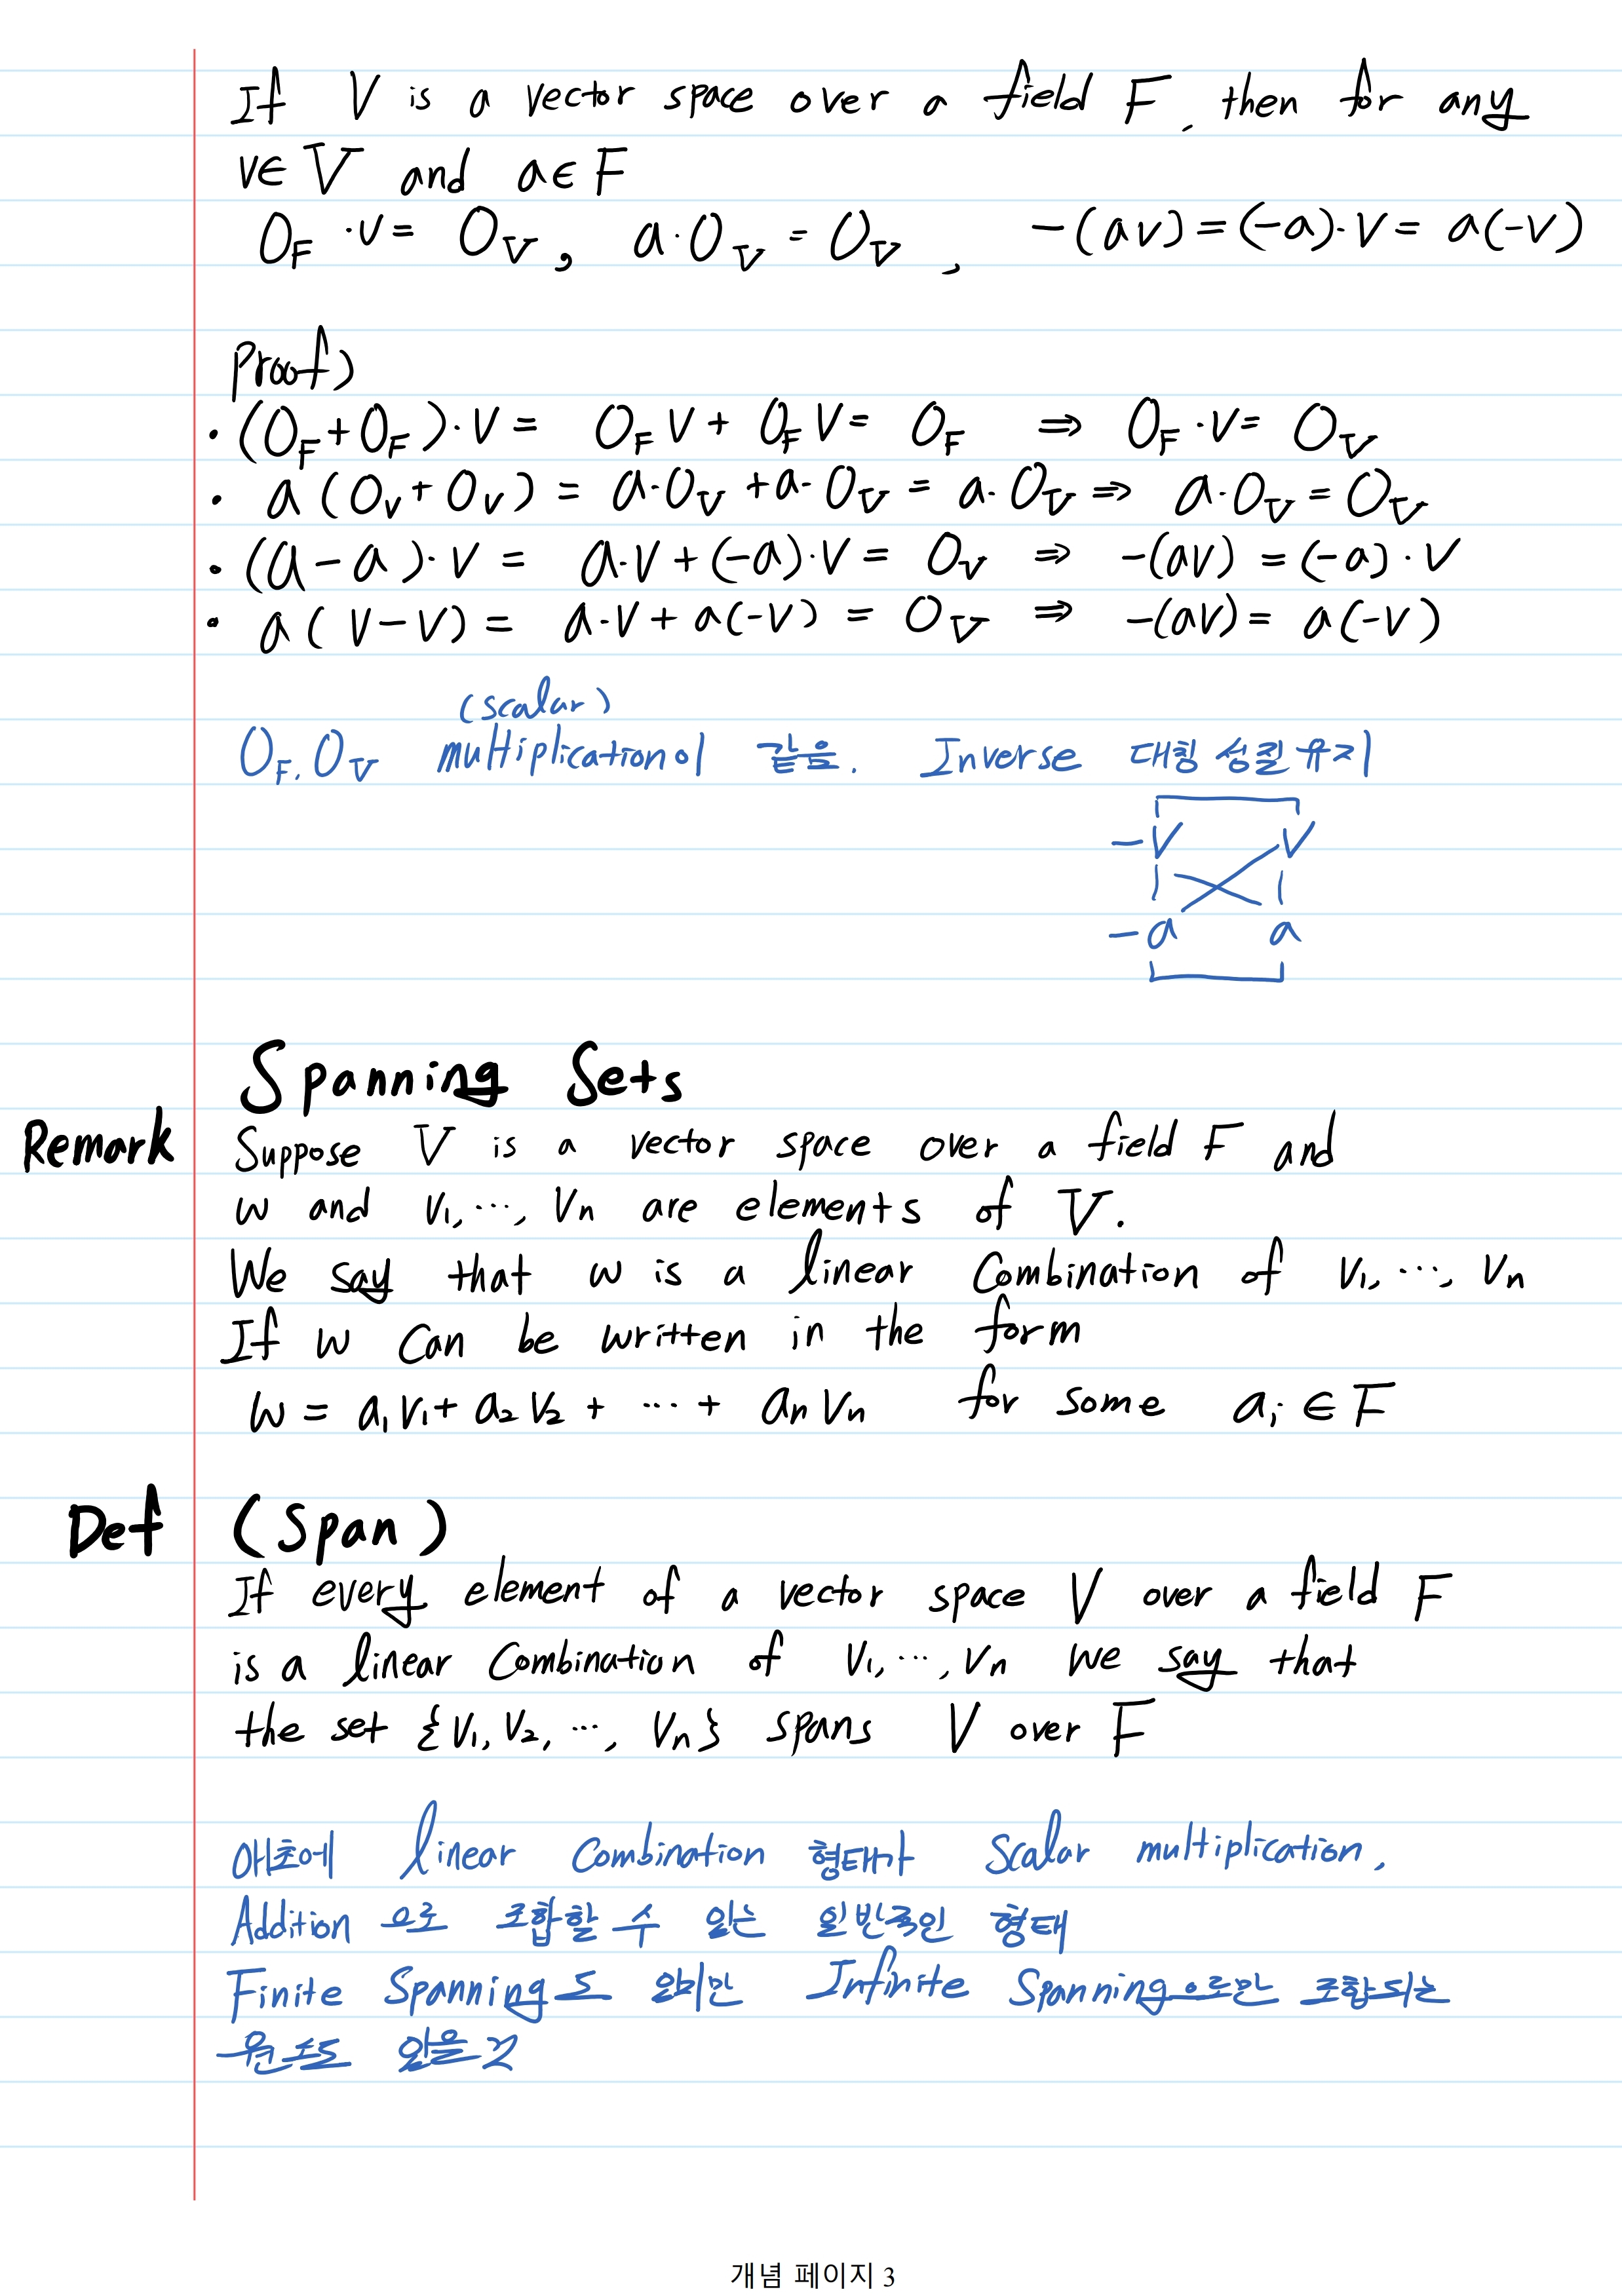 If V is a vector space over a field F, then for any
v∈V and a∈F
0_F ·v= 0_V, a·0_V = 0_V, -(av)=(-a)·v= a(-v)
Proof)
· (0_F+0_F)·v= 0_F v+ 0_F v= 0_F ⇒ 0_F ·v= 0_V
· a(0_V+0_V) = a·0_V+a·0_V = a·0_V ⇒ a·0_V=0_V
· (a-a)·v = a·v+(-a)·v= 0_V ⇒ -(av) =(-a)·v
· a(v-v)= a·v+a(-v) = 0_V ⇒ -(av)= a(-v)
(scalar)
0_F, 0_V multiplication이 같음. Inverse 대칭 성질 유지
-v v
-a a
Spanning Sets
Remark Suppose V is a vector space over a field F and
w and v₁, ⋯, vₙ are elements of V.
We say that w is a linear Combination of v₁, ⋯, vₙ
If w can be written in the form
w = a₁v₁+ a₂v₂ + ⋯ + aₙvₙ for some aᵢ ∈ F
Def (Span)
If every element of a vector space V over a field F
is a linear Combination of v₁, ⋯, vₙ we say that
the set {v₁, v₂, ⋯, vₙ} spans V over F
애초에 linear Combination 형태가 Scalar multiplication,
Addition 으로 조합할 수 있는 일반적인 형태
Finite Spanning도 있지만 Infinite Spanning으로만 조합되는
원소도 있을 것
개념 페이지 3